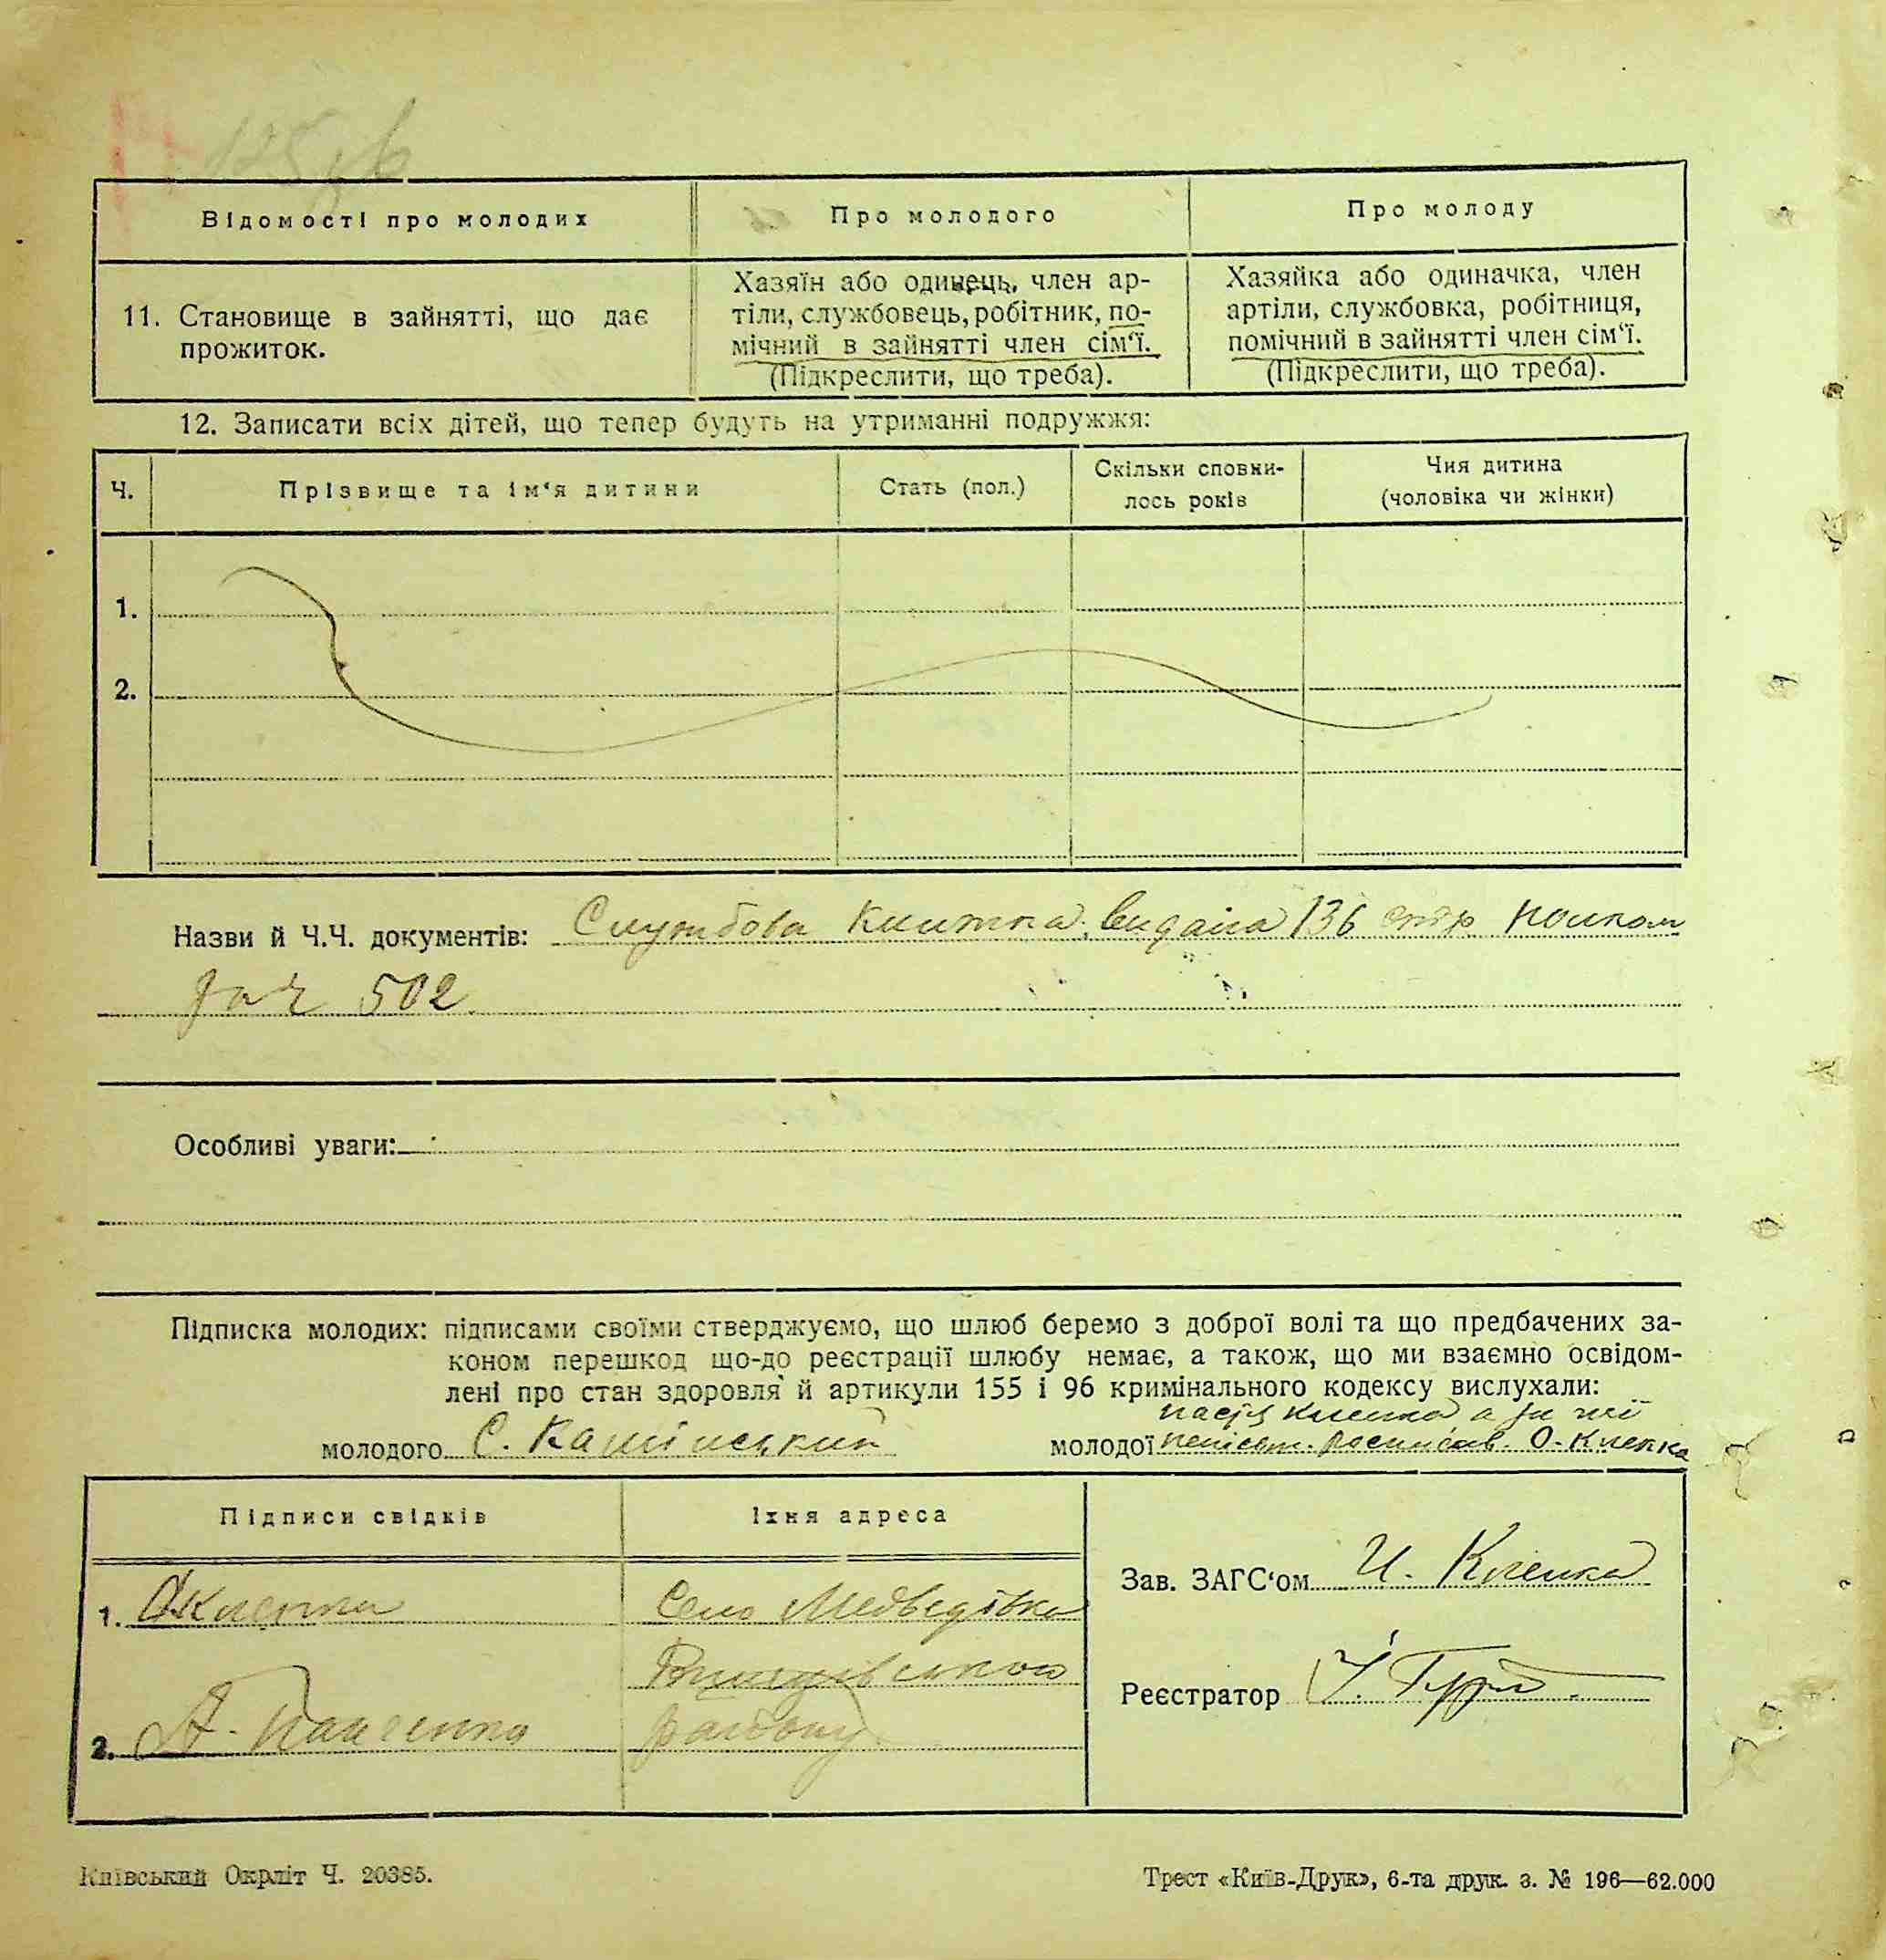 125
Відомості про молодих
Про молодого
Про молоду
11. Становище в зайнятті, що дає
прожиток.
Хазяїн або одинець, член ар-
тіли, службовець, робітник, по-
мічний в зайнятті член сім‘ї.
(Підкреслити, що треба).
Хазяйка або одиначка, член
артіли, службовка, робітниця,
помічний в зайнятті член сім‘ї.
(Підкреслити, що треба).
12. Записати всіх дітей, що тепер будуть на утриманні подружжя:
Ч.
Прізвище та ім‘я дитини
Стать (пол.)
Скільки сповни-
лось років
Чия дитина
(чоловіка чи жінки)
1.
2.
Назви й Ч.Ч. документів: Службова Книжка, видана 136 стр полком
за ч 502
Особливі уваги:
Підписка молодих: підписами своїми стверджуємо, що шлюб беремо з доброї волі та що предбачених за-
коном перешкод що-до реєстрації шлюбу немає, а також, що ми взаємно освідом-
лені про стан здоровля й артикули 155 і 96 кримінального кодексу вислухали:
молодого С. Камінський
молодої неписьм. росписав. О. Клепка
Підписи свідків
Їхня адреса
1. О Клепка
Село Медведівка
району
2. А. Панченко
Зав. ЗАГС‘ом И. Клепка
Реєстратор
Київський Окрліт Ч. 20385.
Трест «Київ-Друк», 6-та друк. з. № 196—62.000